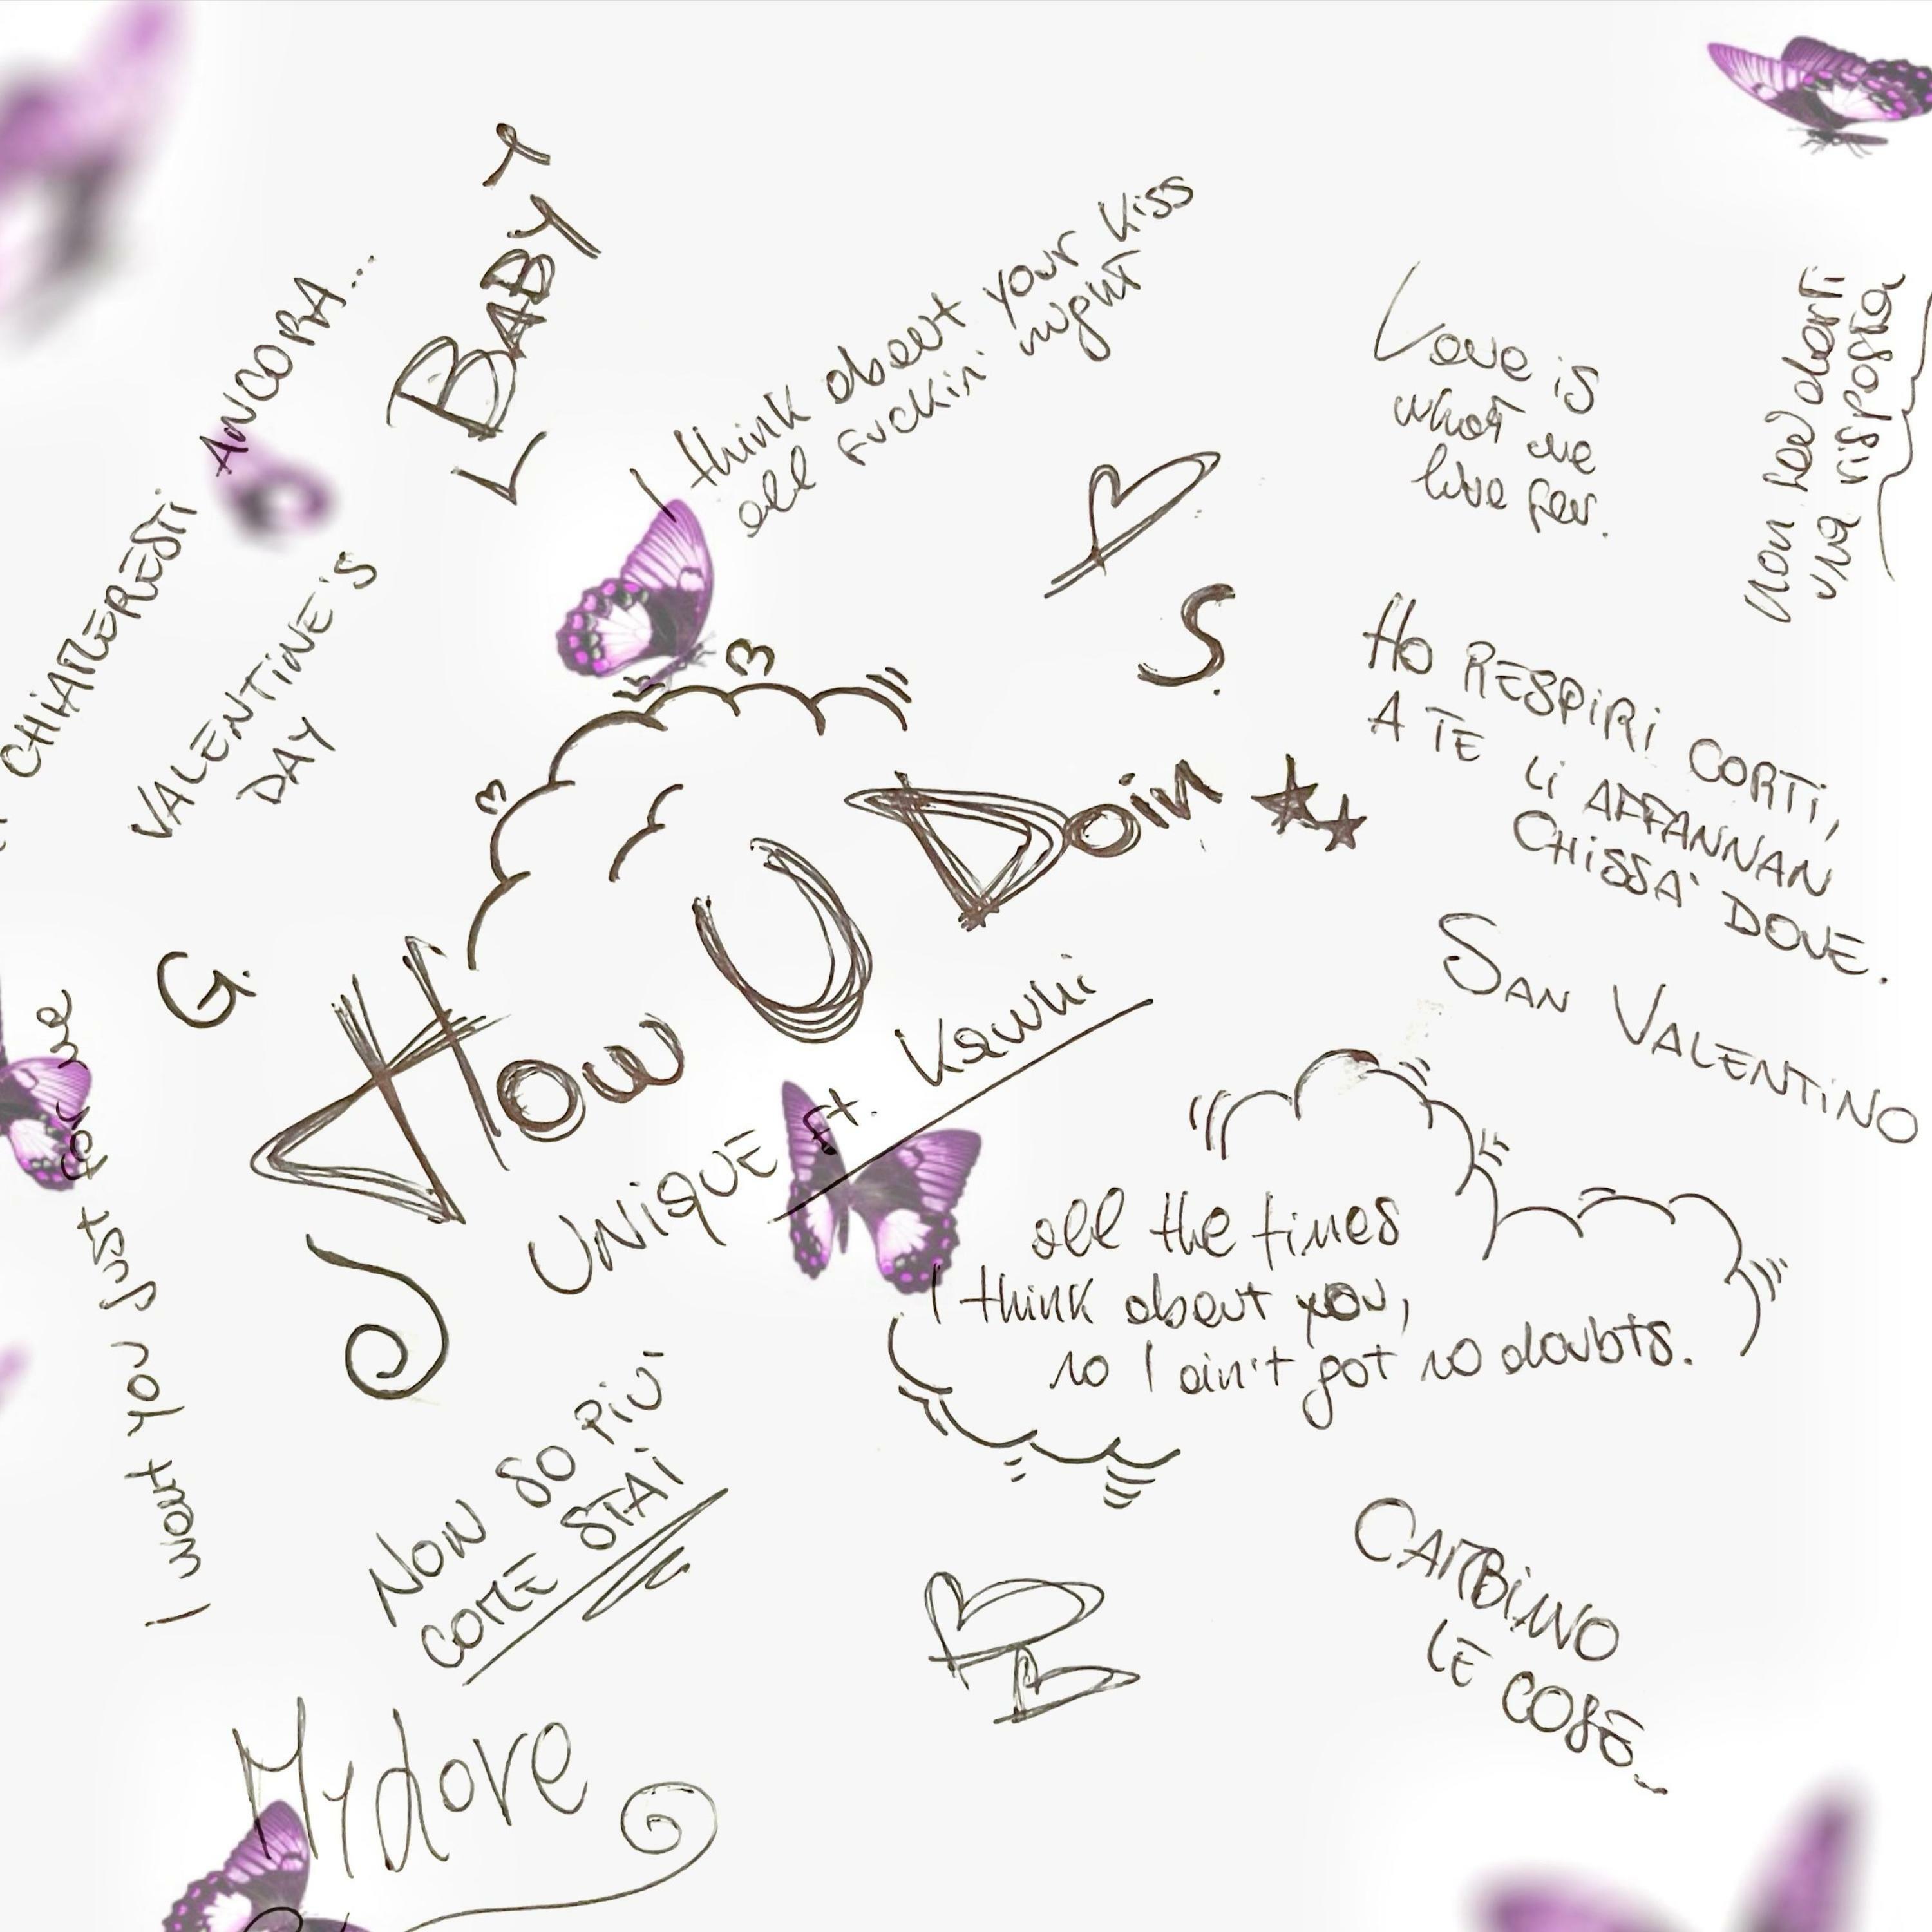 BABY
I think about your kiss
all fuckin' night
Love is
what we
live for.
non hai darti
una risposta
CHIAMERESTI ANCORA...
VALENTINE'S
DAY
S.
HO RESPIRI CORTI,
A TE LI AFFANNAN
CHISSA' DOVE.
SAN VALENTINO
G.
How U Doin
UNIQUE ft. Kawhi
I want you just for me
all the times
I think about you,
no I ain't got no doubts.
NON SO PIÙ
COME STAI
CAMBIANO
LE COSE
My dove